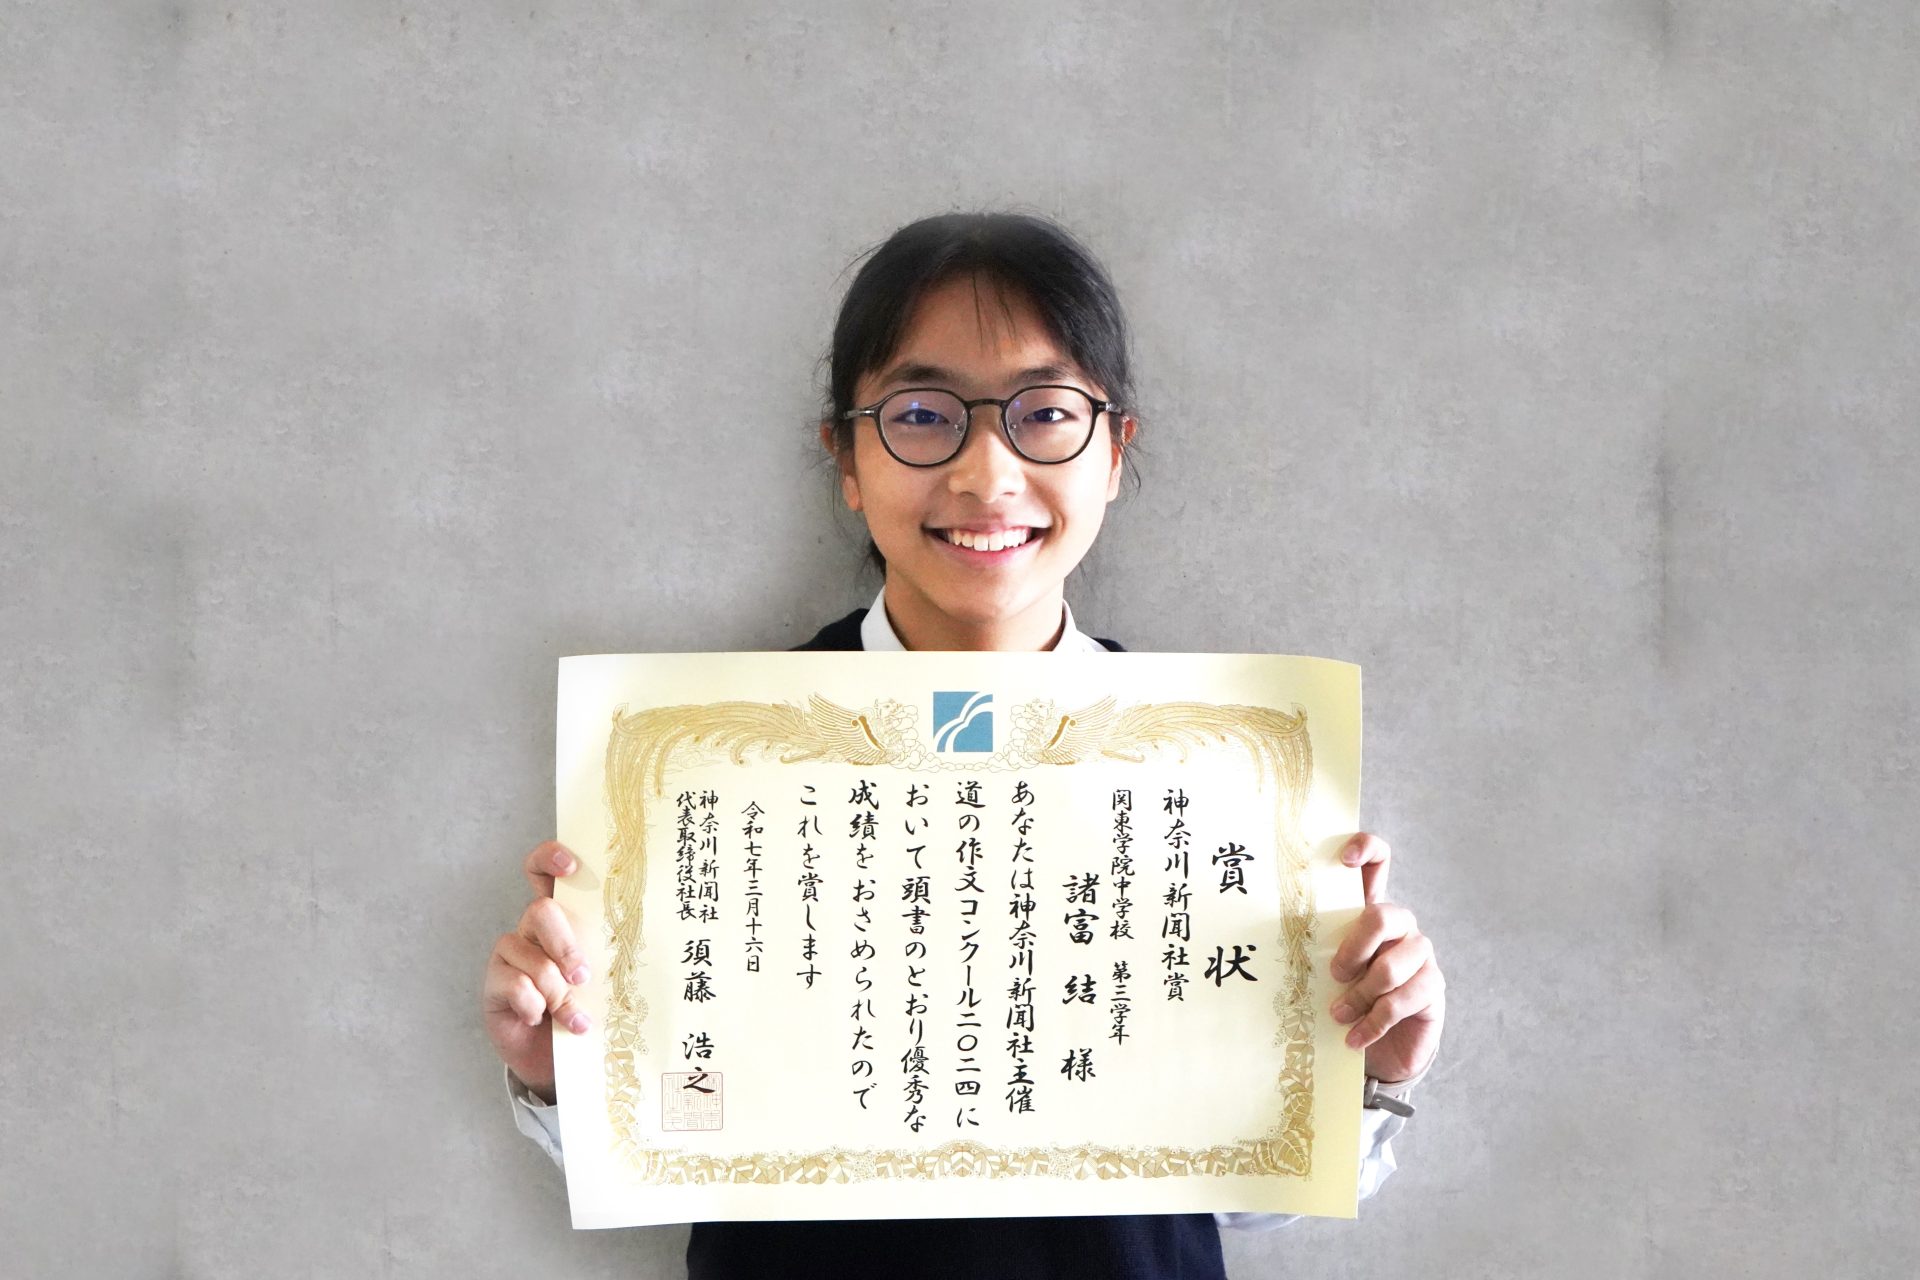 賞状
神奈川新聞社賞
関東学院中学校 第三学年
諸富 結 様
あなたは神奈川新聞社主催
道の作文コンクール二〇二四に
おいて頭書のとおり優秀な
成績をおさめられたので
これを賞します
令和七年三月十六日
神奈川新聞社
代表取締役社長 須藤 浩之